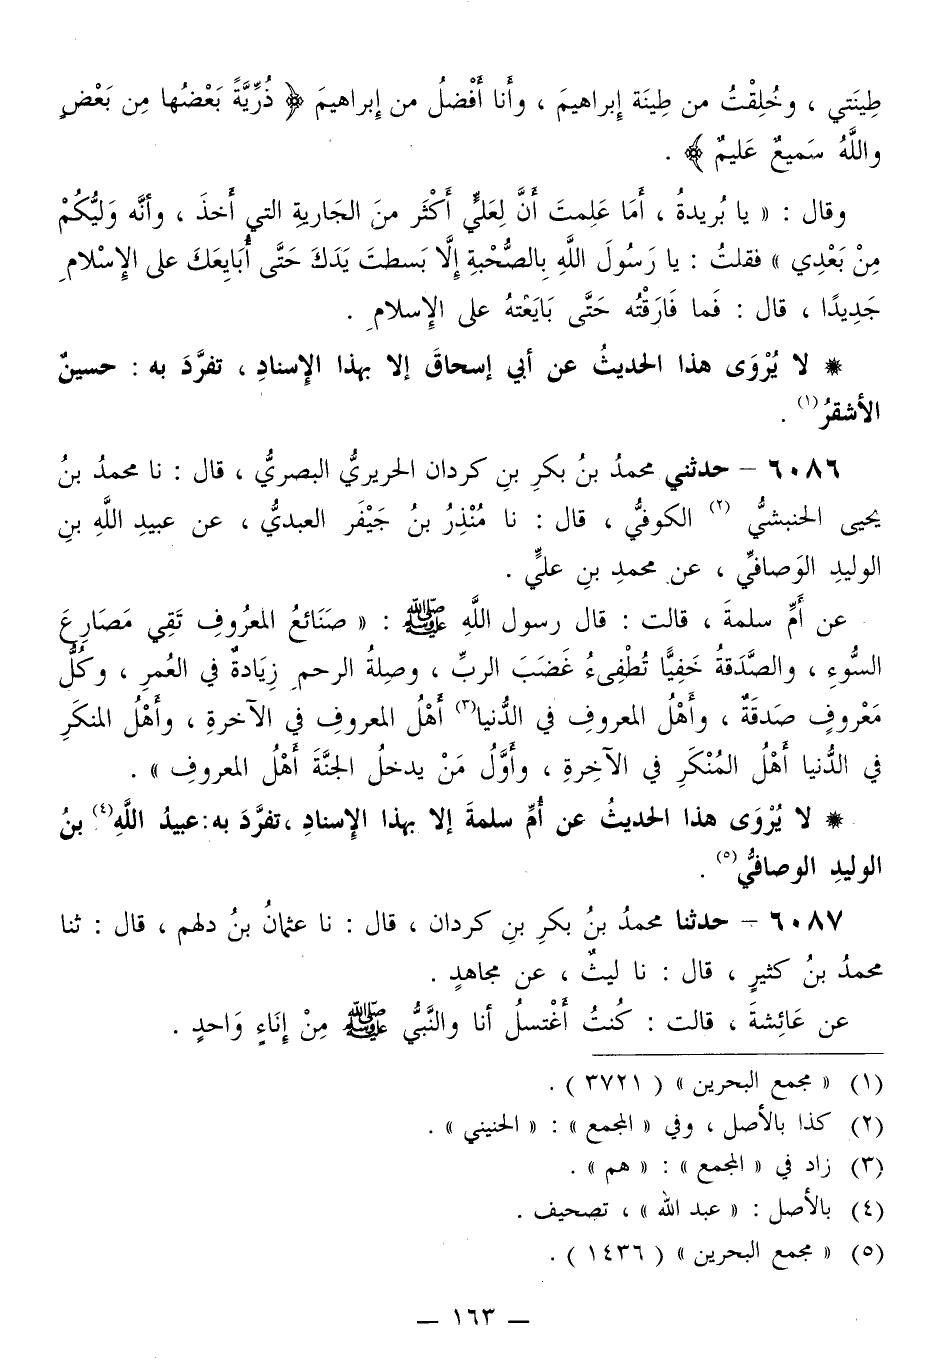 طِينَتي ، وخُلِقْتُ من طِينَة إبراهيمَ ، وأنا أَفْضلُ من إبراهيمَ ﴿ ذُرِّيَّةً بَعْضُها مِن بَعْضٍ
واللَّهُ سَميعٌ عَليمٌ ﴾ .
وقال : « يا بُريدةُ ، أَمَا عَلِمتَ أَنَّ لِعَليٍّ أَكْثَر منَ الجَاريةِ التي أَخذَ ، وأنَّه وَليُّكُمْ
مِنْ بَعْدِي » فقلتُ : يا رَسُولَ اللَّهِ بِالصُّحْبةِ إلَّا بَسطتَ يَدَكَ حَتَّى أُبَايعَكَ على الإِسْلامِ
جَدِيدًا ، قال : فَما فَارَقْتُه حَتَّى بَايَعْتهُ على الإِسلامِ .
* لا يُرْوَى هذا الحديثُ عن أبي إسحاقَ إلا بهذا الإسنادِ ، تفرَّدَ به : حسينٌ
الأشقرُ(١) .
٦٠٨٦ – حدثني محمدُ بنُ بكرِ بنِ كردان الحريريُّ البصريُّ ، قال : نا محمدُ بنُ
يحيى الحنبشيُّ (٢) الكوفيُّ ، قال : نا مُنْذِرُ بنُ جَيْفَر العبديُّ ، عن عبيدِ اللَّهِ بنِ
الوليدِ الوَصافيِّ ، عن محمدِ بنِ عليٍّ .
عن أُمِّ سلمةَ ، قالت : قال رسول اللَّهِ ﷺ : « صَنَائعُ المعرُوفِ تَقِي مَصَارِعَ
السُّوءِ ، والصَّدَقةُ خَفِيًّا تُطْفِىءُ غَضَبَ الربِّ ، وصِلةُ الرحمِ زِيَادةٌ في العُمرِ ، وكُلُّ
مَعْروفٍ صَدقَةٌ ، وأَهْلُ المعروفِ في الدُّنيا(٣) أَهْلُ المعروفِ في الآخرةِ ، وأَهْلُ المنكَرِ
في الدُّنيا أَهْلُ المُنْكَرِ في الآخِرةِ ، وأَوَّلُ مَنْ يدخلُ الجنَّةَ أَهْلُ المعروفِ » .
* لا يُرْوَى هذا الحديثُ عن أُمِّ سلمةَ إلا بهذا الإسنادِ ،تفرَّدَ به:عبيدُ اللَّهِ(٤) بنُ
الوليدِ الوصافيُّ(٥) .
٦٠٨٧ – حدثنا محمدُ بنُ بكرِ بنِ كردان ، قال : نا عثمانُ بنُ دلهم ، قال : ثنا
محمدُ بنُ كثيرٍ ، قال : نا ليثٌ ، عن مجاهدٍ .
عن عَائِشةَ ، قالت : كُنتُ أَغْتسلُ أنا والنَّبيُّ ﷺ مِنْ إنَاءٍ وَاحدٍ .
(١) « مجمع البحرين » ( ٣٧٢١ ) .
(٢) كذا بالأصل ، وفي « المجمع » : « الحنيني » .
(٣) زاد في « المجمع » : « هم » .
(٤) بالأصل : « عبد الله » ، تصحيف .
(٥) « مجمع البحرين » ( ١٤٣٦ ) .
— ١٦٣ —